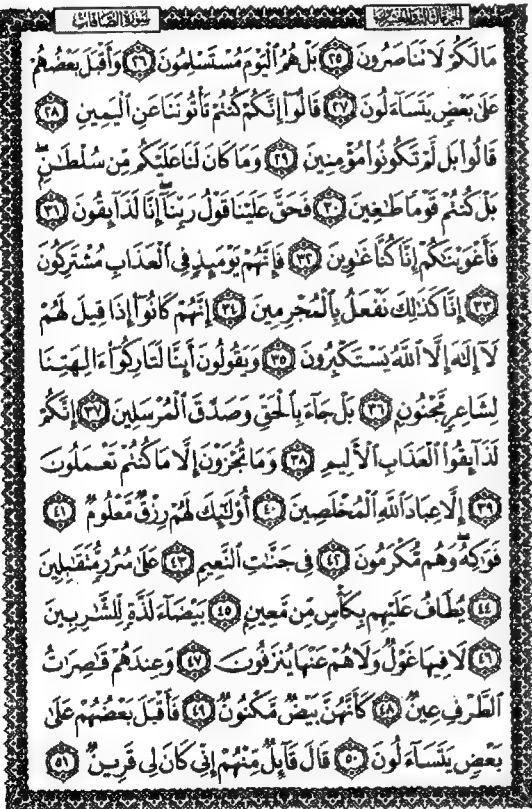 الجزء الثالث والعشرون
سورة الصافات
مَا لَكُمْ لَا تَنَاصَرُونَ ٢٥ بَلْ هُمُ الْيَوْمَ مُسْتَسْلِمُونَ ٢٦ وَأَقْبَلَ بَعْضُهُمْ
عَلَىٰ بَعْضٍ يَتَسَاءَلُونَ ٢٧ قَالُوا إِنَّكُمْ كُنتُمْ تَأْتُونَنَا عَنِ الْيَمِينِ ٢٨
قَالُوا بَل لَّمْ تَكُونُوا مُؤْمِنِينَ ٢٩ وَمَا كَانَ لَنَا عَلَيْكُم مِّن سُلْطَٰنٍ
بَلْ كُنتُمْ قَوْمًا طَٰغِينَ ٣٠ فَحَقَّ عَلَيْنَا قَوْلُ رَبِّنَا إِنَّا لَذَائِقُونَ ٣١
فَأَغْوَيْنَٰكُمْ إِنَّا كُنَّا غَٰوِينَ ٣٢ فَإِنَّهُمْ يَوْمَئِذٍ فِي الْعَذَابِ مُشْتَرِكُونَ
٣٣ إِنَّا كَذَٰلِكَ نَفْعَلُ بِالْمُجْرِمِينَ ٣٤ إِنَّهُمْ كَانُوا إِذَا قِيلَ لَهُمْ
لَا إِلَٰهَ إِلَّا اللَّهُ يَسْتَكْبِرُونَ ٣٥ وَيَقُولُونَ أَئِنَّا لَتَارِكُوا ءَالِهَتِنَا
لِشَاعِرٍ مَّجْنُونٍ ٣٦ بَلْ جَاءَ بِالْحَقِّ وَصَدَّقَ الْمُرْسَلِينَ ٣٧ إِنَّكُمْ
لَذَائِقُوا الْعَذَابِ الْأَلِيمِ ٣٨ وَمَا تُجْزَوْنَ إِلَّا مَا كُنتُمْ تَعْمَلُونَ
٣٩ إِلَّا عِبَادَ اللَّهِ الْمُخْلَصِينَ ٤٠ أُولَٰئِكَ لَهُمْ رِزْقٌ مَّعْلُومٌ ٤١
فَوَٰكِهُ وَهُم مُّكْرَمُونَ ٤٢ فِي جَنَّٰتِ النَّعِيمِ ٤٣ عَلَىٰ سُرُرٍ مُّتَقَٰبِلِينَ
٤٤ يُطَافُ عَلَيْهِم بِكَأْسٍ مِّن مَّعِينٍ ٤٥ بَيْضَاءَ لَذَّةٍ لِّلشَّٰرِبِينَ
٤٦ لَا فِيهَا غَوْلٌ وَلَا هُمْ عَنْهَا يُنزَفُونَ ٤٧ وَعِندَهُمْ قَٰصِرَاتُ
الطَّرْفِ عِينٌ ٤٨ كَأَنَّهُنَّ بَيْضٌ مَّكْنُونٌ ٤٩ فَأَقْبَلَ بَعْضُهُمْ عَلَىٰ
بَعْضٍ يَتَسَاءَلُونَ ٥٠ قَالَ قَائِلٌ مِّنْهُمْ إِنِّي كَانَ لِي قَرِينٌ ٥١